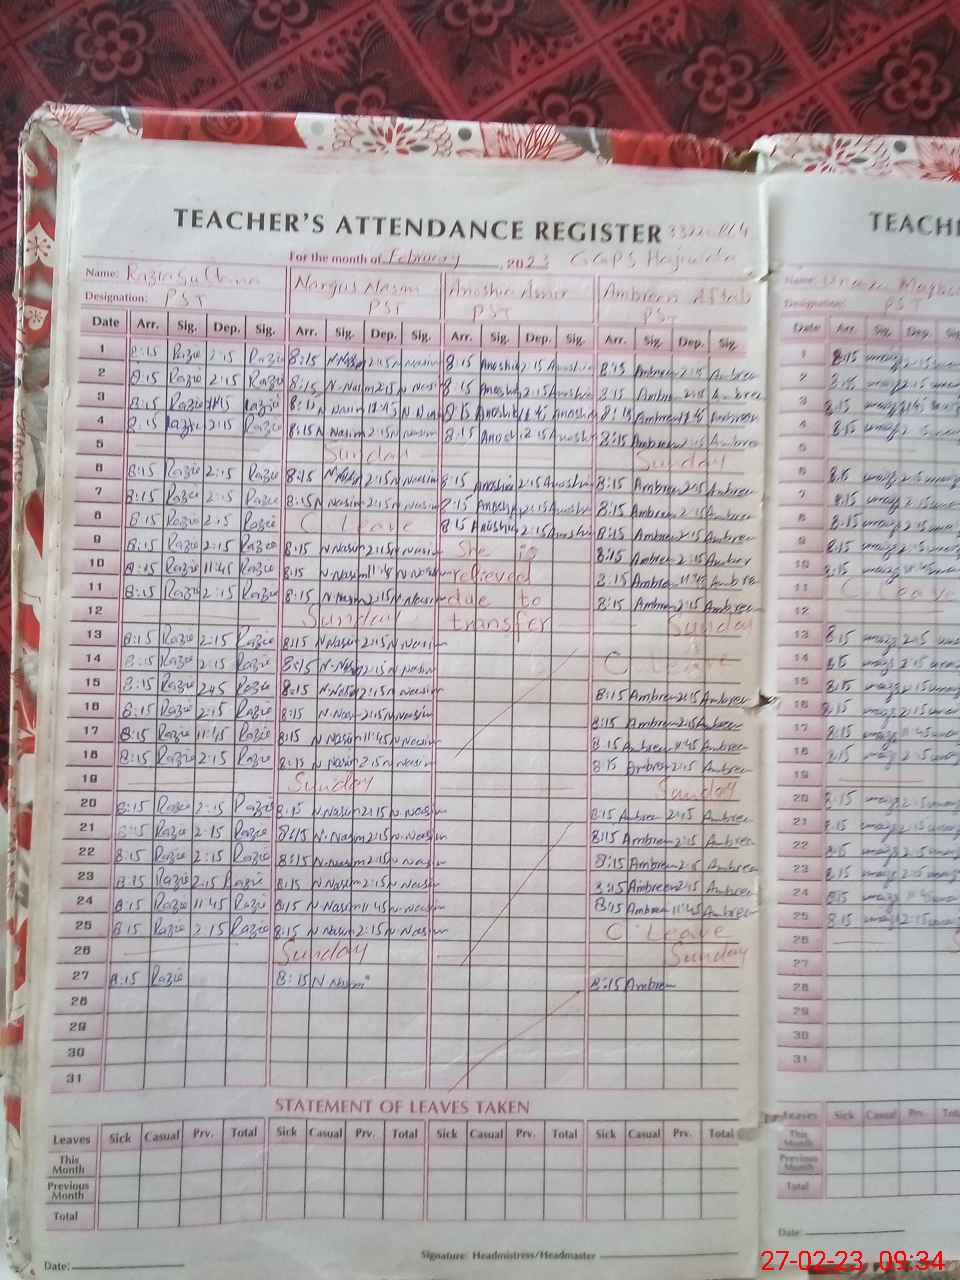 TEACHER'S ATTENDANCE REGISTER TEACHE
For the month of February, 2023 GGPS
Name: Razia Sultana Nargus Nasim Anoshia Amir Ambreen Aftab Name:
Designation: PST PST PST PST Designation: PST
Date Arr. Sig. Dep. Sig. Arr. Sig. Dep. Sig. Arr. Sig. Dep. Sig. Arr. Sig. Dep. Sig. Date Arr. Sig. Dep.
1 8:15 Razie 2:15 Razie 8:15 N.Nasim 2:15 N Nasim 8:15 Anoshia 2:15 Anoshia 8:15 Ambreen 2:15 Ambreen 1 8:15
2 8:15 Razie 2:15 Razie 8:15 N.Nasim 2:15 N Nasim 8:15 Anoshia 2:15 Anoshia 8:15 Ambreen 2:15 Ambreen 2 8:15
3 8:15 Razie 11:45 Razie 8:15 N Nasim 11:45 N Nasim 8:15 Anoshia 11:45 Anoshia 8:15 Ambreen 11:45 Ambreen 3 8:15
4 8:15 Razie 2:15 Razie 8:15 N Nasim 2:15 N Nasim 8:15 Anoshia 2:15 Anoshia 8:15 Ambreen 2:15 Ambreen 4 8:15
5 Sunday Sunday 5
6 8:15 Razie 2:15 Razie 8:15 N Nasim 2:15 N Nasim 8:15 Anoshia 2:15 Anoshia 8:15 Ambreen 2:15 Ambreen 6 8:15
7 8:15 Razie 2:15 Razie 8:15 N Nasim 2:15 N Nasim 8:15 Anoshia 2:15 Anoshia 8:15 Ambreen 2:15 Ambreen 7 8:15
8 8:15 Razie 2:15 Razie C Leave 8:15 Anoshia 2:15 Anoshia 8:15 Ambreen 2:15 Ambreen 8 8:15
9 8:15 Razie 2:15 Razie 8:15 N Nasim 2:15 N Nasim She is 8:15 Ambreen 2:15 Ambreen 9 8:15
10 8:15 Razie 11:45 Razie 8:15 N.Nasim 11:45 N.Nasim relieved 8:15 Ambreen 11:45 Ambreen 10 8:15
11 8:15 Razie 2:15 Razie 8:15 N.Nasim 2:15 N Nasim due to 8:15 Ambreen 2:15 Ambreen 11 C Leave
12 Sunday transfer Sunday 12
13 8:15 Razie 2:15 Razie 8:15 N Nasim 2:15 N.Nasim 13 8:15
14 8:15 Razie 2:15 Razie 8:15 N.Nasim 2:15 N Nasim C Leave 14 8:15
15 8:15 Razie 2:45 Razie 8:15 N.Nasim 2:15 N.Nasim 8:15 Ambreen 2:15 Ambreen 15 8:15
16 8:15 Razie 2:15 Razie 8:15 N.Nasim 2:15 N.Nasim 8:15 Ambreen 2:15 Ambreen 16 8:15
17 8:15 Razie 11:45 Razie 8:15 N Nasim 11:45 N.Nasim 8:15 Ambreen 11:45 Ambreen 17 8:15
18 8:15 Razie 2:15 Razie 8:15 N Nasim 2:15 N.Nasim 8:15 Ambreen 2:15 Ambreen 18 8:15
19 Sunday Sunday 19
20 8:15 Razie 2:15 Razie 8:15 N.Nasim 2:15 N.Nasim 8:15 Ambreen 2:15 Ambreen 20 8:15
21 8:15 Razie 2:15 Razie 8:15 N.Nasim 2:15 N.Nasim 8:15 Ambreen 2:15 Ambreen 21 8:15
22 8:15 Razie 2:15 Razie 8:15 N.Nasim 2:15 N.Nasim 8:15 Ambreen 2:15 Ambreen 22 8:15
23 8:15 Razie 2:15 Razie 8:15 N.Nasim 2:15 N.Nasim 8:15 Ambreen 2:15 Ambreen 23 8:15
24 8:15 Razie 11:45 Razie 8:15 N Nasim 11:45 N.Nasim 8:15 Ambreen 11:45 Ambreen 24 8:15
25 8:15 Razie 2:15 Razie 8:15 N.Nasim 2:15 N.Nasim C Leave 25 8:15
26 Sunday Sunday 26
27 8:15 Razie 8:15 N Nasim 8:15 Ambreen 27
28 28
29 29
30 30
31 31
STATEMENT OF LEAVES TAKEN
Leaves Sick Casual Prv. Total Sick Casual Prv. Total Sick Casual Prv. Total Sick Casual Prv. Total Leaves Sick Casual Prv.
This Month This Month
Previous Month Previous Month
Total Total
Date: Signature: Headmistress/Headmaster Date:
27-02-23 09:34